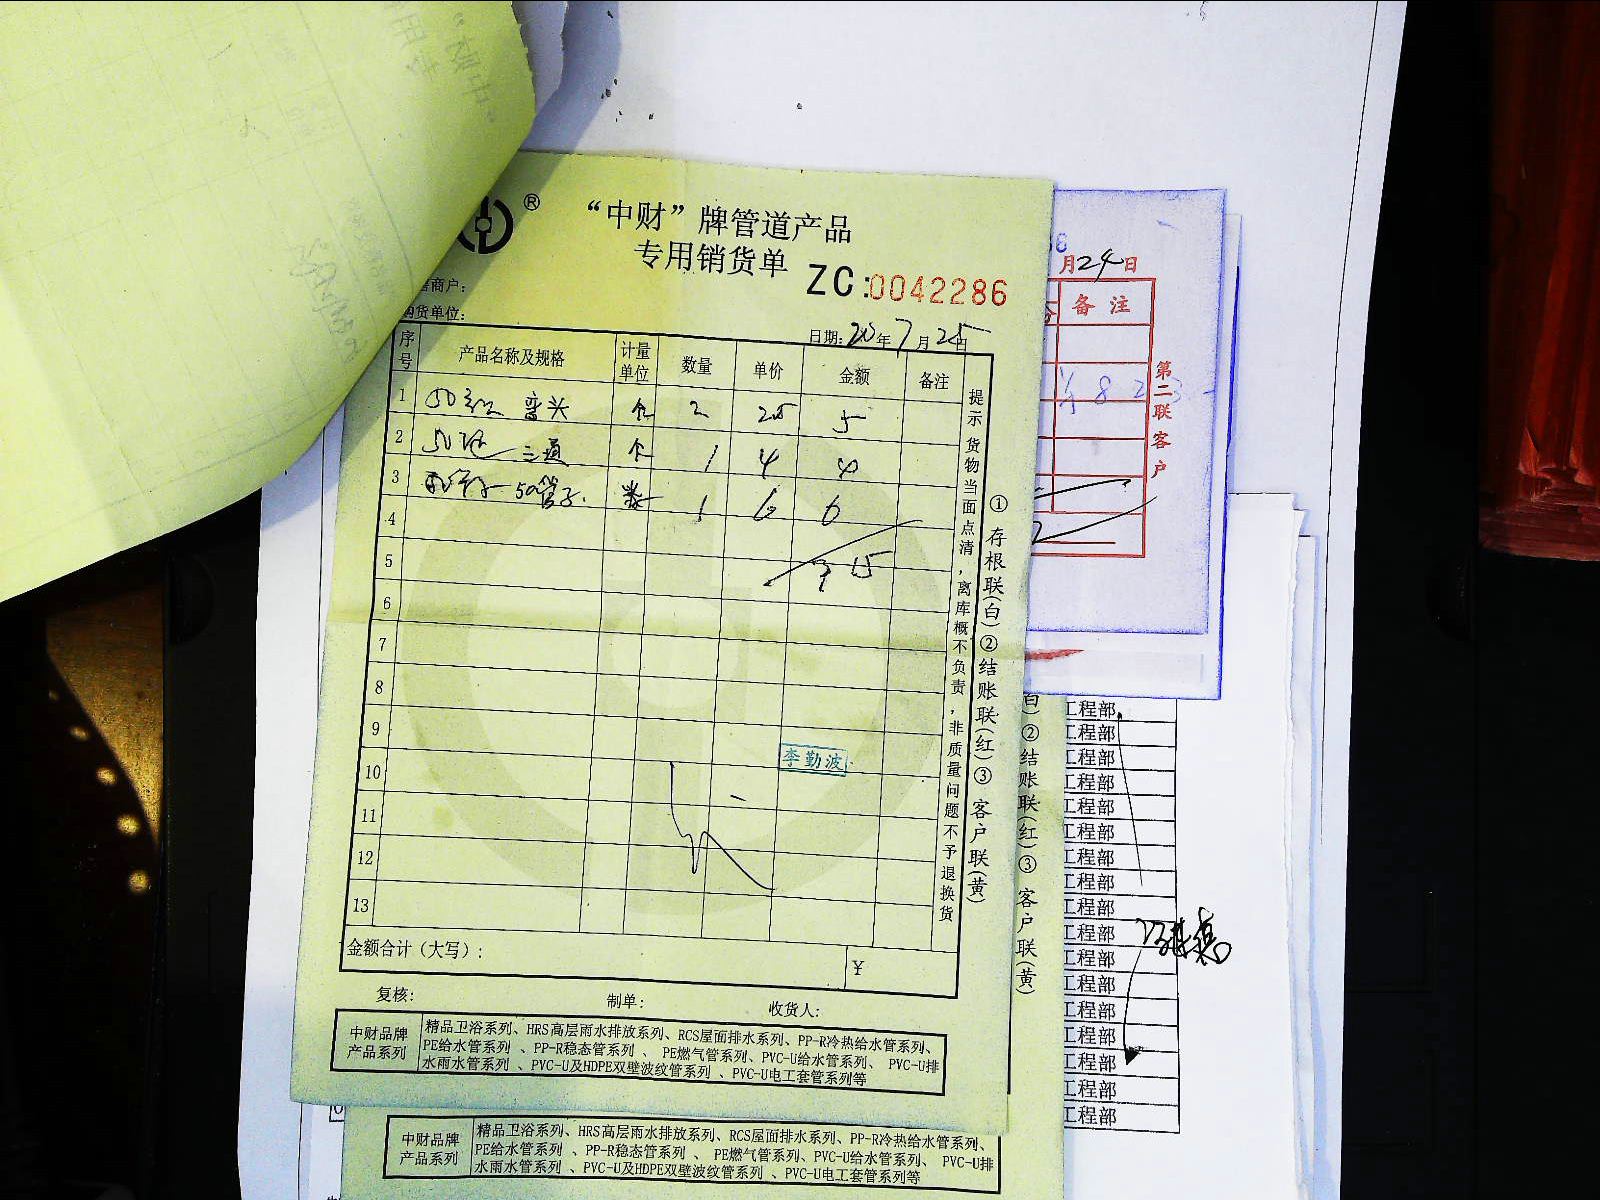 ®
“中财”牌管道产品
专用销货单
ZC:0042286
售商户:
购货单位:
日期: 20年7月25日
序号 产品名称及规格 计量单位 数量 单价 金额 备注
1 50 弯头 个 2 25 5
2 50 三通 个 1 4 4
3 50管子 1 6 6
4 15
5
6
7
8
9
10
11
12
13
李勤波
金额合计(大写): ¥
复核: 制单: 收货人:
提示 货物当面点清,离库概不负责,非质量问题不予退换货
①存根联(白)②结账联(红)③客户联(黄)
中财品牌产品系列
精品卫浴系列、HRS高层雨水排放系列、RCS屋面排水系列、PP-R冷热给水管系列、
PE给水管系列、PP-R稳态管系列、PE燃气管系列、PVC-U给水管系列、PVC-U排
水雨水管系列、PVC-U及HDPE双壁波纹管系列、PVC-U电工套管系列等
月24日
备注
823
第二联客户
白)②结账联(红)③客户联(黄)
工程部
工程部
工程部
工程部
工程部
工程部
工程部
工程部
工程部
工程部
工程部
工程部
工程部
工程部
工程部
工程部
工程部
中财品牌产品系列
精品卫浴系列、HRS高层雨水排放系列、RCS屋面排水系列、PP-R冷热给水管系列、
PE给水管系列、PP-R稳态管系列、PE燃气管系列、PVC-U给水管系列、PVC-U排
水雨水管系列、PVC-U及HDPE双壁波纹管系列、PVC-U电工套管系列等